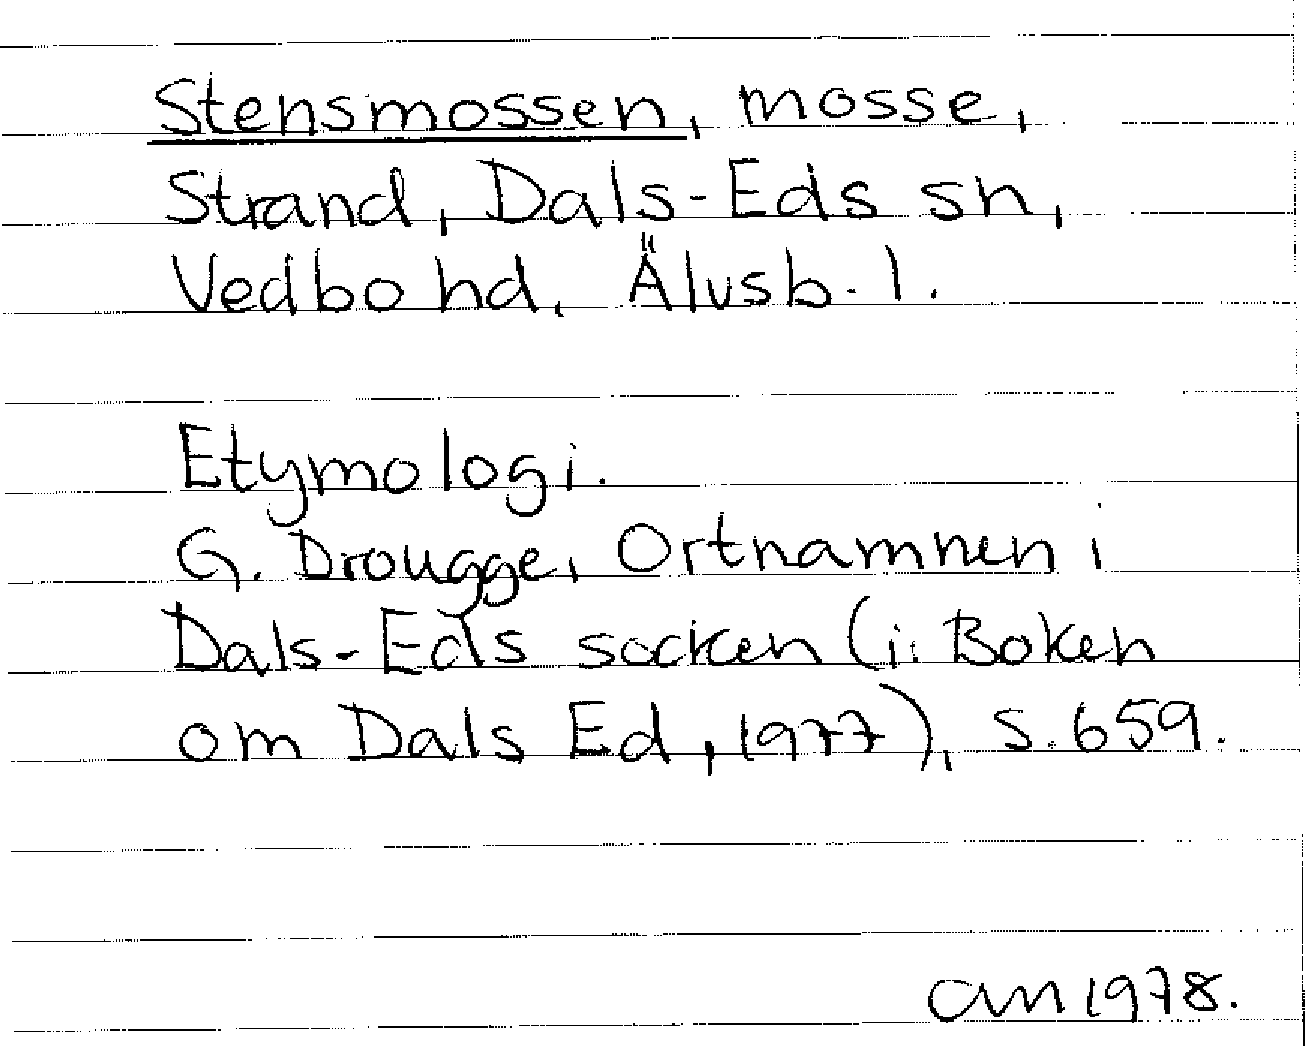 Stensmossen, mosse,
Strand, Dals-Eds sn,
Vedbo hd, Älvsb. l.
Etymologi.
G. Drougge, Ortnamnen i
Dals-Eds socken (i: Boken
om Dals Ed, 1977), s. 659.
am 1978.